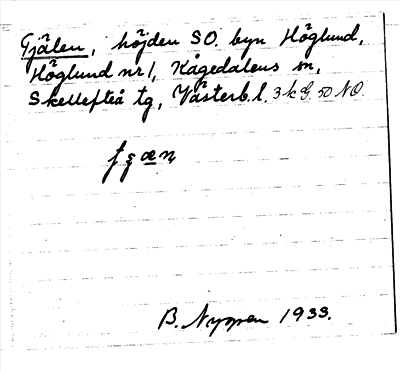 Tjälen, höjden SO. byn Höglund,
Höglund nr 1, Kågedalens sn,
Skellefteå tg, Västerb. l. 3 k G. 50 NO.
B. Nyman 1933.